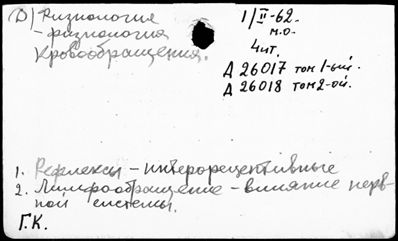 D) Физиология
- физиология
кровообращения.
1/II-62.
м.о.
4ит.
Д 26017 том 1-ый.
Д 26018 том 2-ой.
1. Рефлексы - интерорецептивные
2. Лимфообращение - влияние нерв-
ной системы.
Г.К.